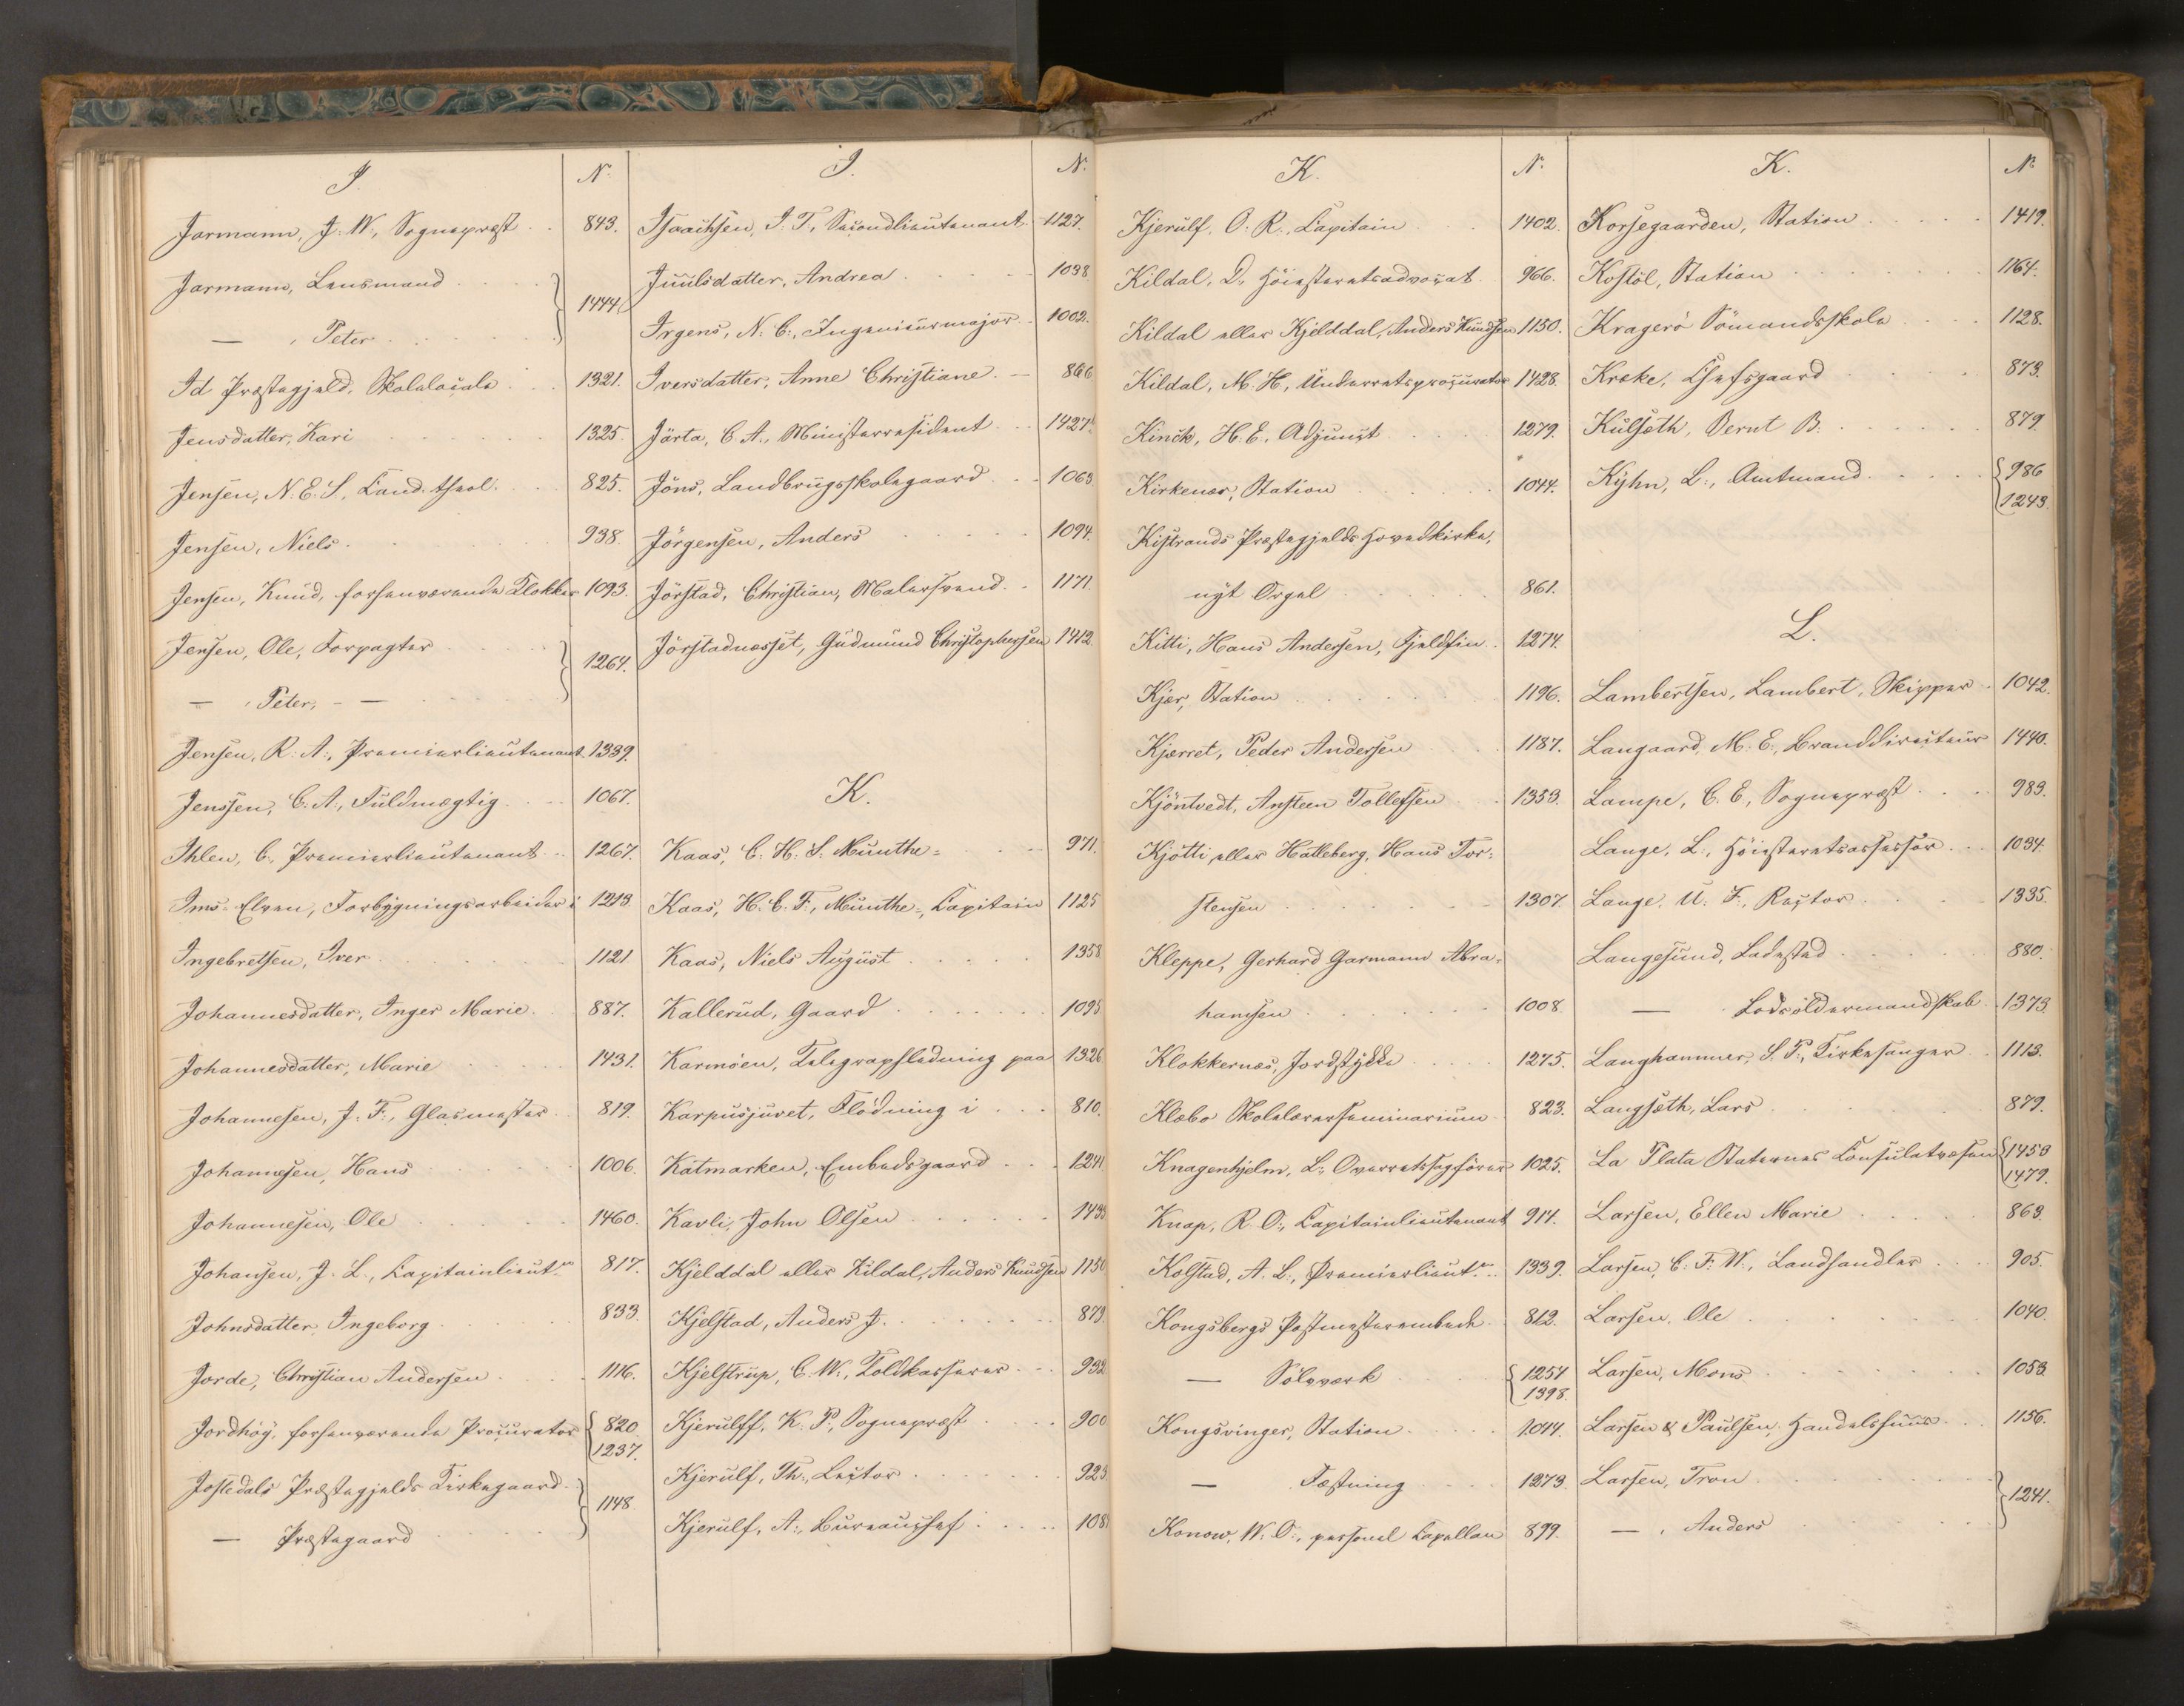 J.
N.
Jarmann, J. W., Sognepræst . . 843.
Jarmann, Lensmand . . . .
— , Peter . . . . . . } 1444.
Id Præstegjeld, Skolelocale . . 1321.
Jensdatter, Kari . . . . 1325.
Jensen, N. E. S., Cand. theol. . . 825.
Jensen, Niels . . . . . 938.
Jensen, Knud, forhenværende Klokker 1093.
Jensen, Ole, Forpagter . . . .
— , Peter, - — . . . } 1264.
Jensen, R. A., Premierlieutenant. 1339.
Jenssen, C. A., Fuldmægtig . . . 1067.
Ihlen, C., Premierlieutenant . . 1267.
Ims-Elven, Forbygningsarbeider i 1213.
Ingebretsen, Iver . . . . . 1121
Johannesdatter, Inger Marie . 887.
Johannesdatter, Marie . . . 1431.
Johannesen, J. F., Glasmester . . 819.
Johannesen, Hans . . . . . 1006.
Johannesen, Ole . . . . . 1460.
Johansen, J. L., Capitainlieut. 817.
Johnsdatter, Ingeborg . . . . 833.
Jorde, Christian Andersen . . . 1116.
Jordhøg, forhenværende Procurator { 820.
1237.
Jostedals Præstegjelds Kirkegaard .
— Præstegaard . . . . } 1148.
J.
N.
Isaachsen, I. T., Secondlieutenant. 1127.
Juulsdatter, Andrea . . . . . 1038
Irgens, N. C., Ingenieurmajor . 1002.
Iversdatter, Anne Christiane. — 866
Järta, C. A., Ministerresident . . . 1427.
Jöns, Landbrugsskolegaard . . . 1063
Jörgensen, Anders . . . . . 1094.
Jörstad, Christian, Malersvend . . 1171.
Jörstadnesset, Gudmund Christophersen 1412
K.
Kaas, C. H. S. Munthe- . . . 971.
Kaas, H. C. F., Munthe-, Capitain 1125
Kaas, Niels August . . . . . 1358
Kallerud, Gaard . . . . . . 1095
Karmöen, Telegraphledning paa 1326
Karpusjuvet, Flödning i . . . 810.
Katmarken, Embedsgaard . . . 1241
Kavli, John Olsen . . . . . .
Kjelddal eller Kildal, Anders Knudsen 1150
Kjelstad, Anders J. . . . . . . 879.
Kjelstrup, C. W., Toldkasserer . . . 932
Kjerulff, K. P., Sognepræst . . . . 900
Kjerulf, Th., Lector . . . . . . 923
Kjerulf, A., Bureauchef . . . . . 108
K.
N.
Kjerulf, O. R., Capitain . . . 1402.
Kildal, D., Höiesteretsadvocat . 966.
Kildal eller Kjelddal, Anders Knudsen 1150.
Kildal, M. H., Underretsprocurator 1428.
Kinck, H. E., Adjunct . . . . 1279.
Kirkenær, Station . . . . . 1044.
Kistrands Præstegjelds Hovedkirke,
nyt Orgel . . . . . . 861.
Kitti, Hans Andersen, Fjeldfin . . 1274.
Kjær, Station . . . . . . . 1196.
Kjærret, Peder Andersen . . . . 1187.
Kjöntvedt, Ansteen Tollefsen . . 1353.
Kjötti eller Halleberg, Hans Tor-
stensen . . . . . . . 1307.
Kleppe, Gerhard Garmann Abra-
hamsen . . . . . . . 1008.
Klokkernæs, Jordstykke . . . . 1275.
Klæbo Skolelærerseminarium . 823.
Knagenhjelm, L., Overretssagförer 1025.
Knap, R. O., Capitainlieutenant 914.
Kolstad, A. L., Premierlieut. . . . 1339.
Kongsbergs Postmesterembede . 812.
— Sölvværk . . . . { 1254
1398.
Kongsvinger, Station . . . . . 1044.
— Fæstning . . . . 1273.
Konow, W. O., personel Capellan 899.
K.
N.
Korsegaarden, Station . . . . . 1419.
Kostöl, Station . . . . . . . 1164.
Kragerö Sömandsskole . . . 1128.
Kreke, Chefsgaard . . . . . 873.
Kulseth, Bernt B. . . . . . . 879.
Kyhn, L., Amtmand . . . . . { 986
1243.
L.
Lambertsen, Lambert, Skipper . 1042.
Langaard, M. E., Branddirecteur 1440.
Lampe, C. E., Sognepræst . . . . 983.
Lange, L., Höiesteretsassessor . . . 1034.
Lange, U. F., Rector . . . . . 1335.
Langesund, Ladested . . . . . 880.
— Lodsoldermandskab . . 1373.
Langhammer, S. P., Kirkesanger . . 1113.
Langseth, Lars . . . . . . 879.
La Plata Staternes Consulatvæsen { 1453
1479.
Larsen, Ellen Marie . . . . . 863.
Larsen, C. F. W., Landhandler . . . 905.
Larsen, Ole . . . . . . . 1040.
Larsen, Mons . . . . . . . 1053.
Larsen & Paulsen, Handelshuus . . . 1156.
Larsen, Tron . . . . . . .
— , Anders . . . . . } 1241.